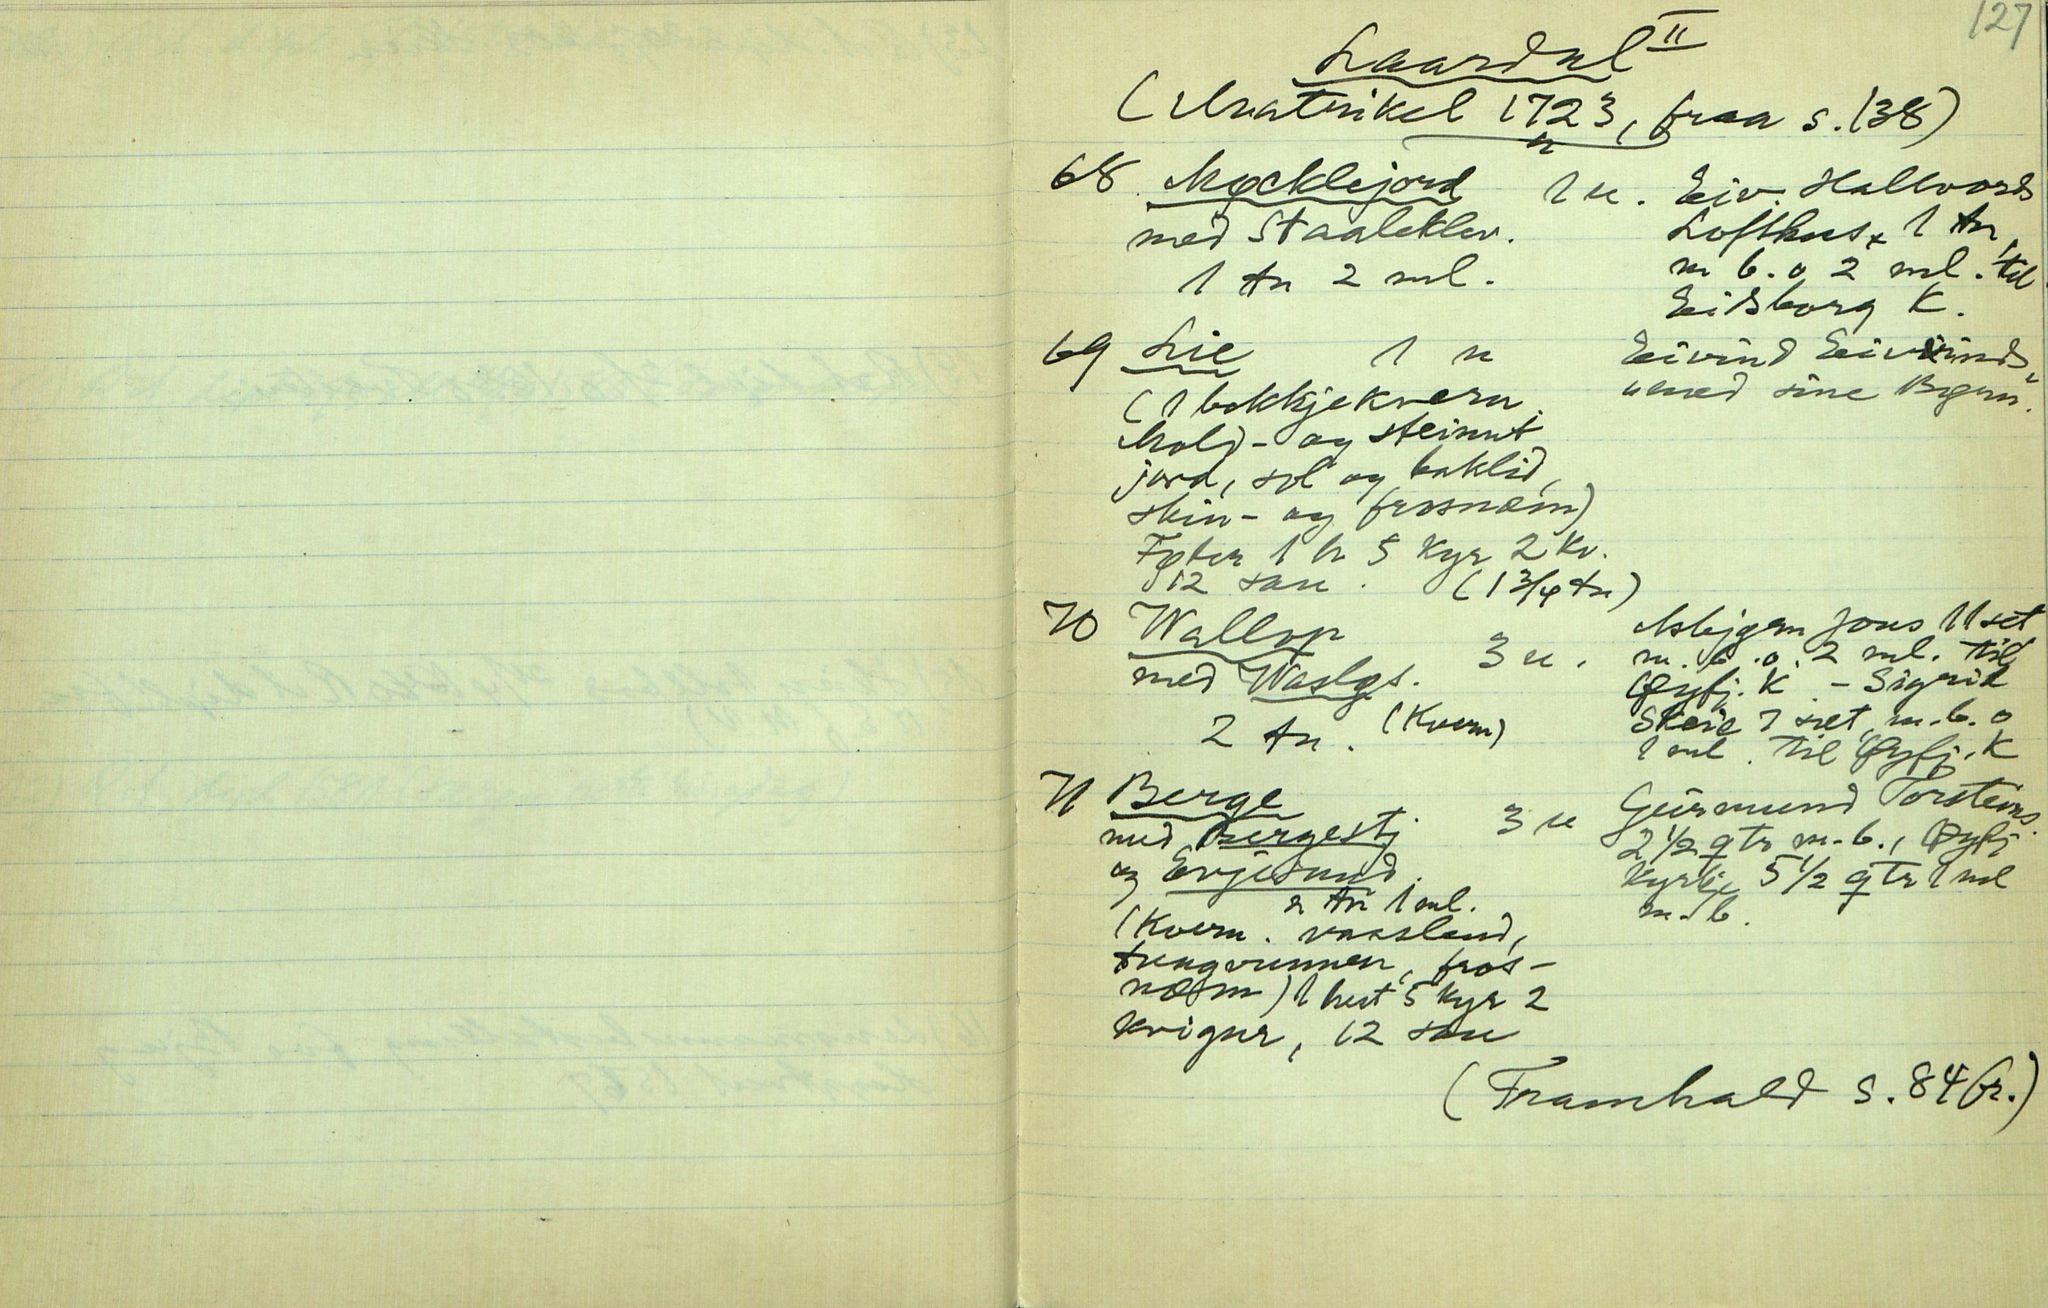 127
Laardal II
(Matrikel 1723, fraa s. 138)
68 Møcklejord 1 u. Eiv. Hallvords
med Staaleklev. Lofthus, 1 tn,
1 tn 2 ml. m b. o 2 ml. til
Eidsborg K.
69 Lie 1 u Eivind Eivinds
(1 bekkjekvern. "med sine Bygsn".
Mold- og steinut
jord, sol og baklid,
skin- og frosnæm)
Føder 1 h 5 kyr 2 kv.
12 sau. (1 3/4 tn)
70 Wallop 3 u. Asbjørn Jons 11 set
med Waslgs. m. b. o. 2 ml. til
2 tn. (Kvern) Øyfj. K - Sigrid
Skeie 7 set, m. b. o
1 ml. til Øyfj. K
71 Berge 3 u Geirmund Torsteins.
med Bergestj 2 1/2 qtr m. b., Øyfj
og Evjesund. Kyrkje 5 1/2 qtr 1 ml
2 tn 1 ml. m. b.
(Kvern. vassland,
tungvunnen, fros-
næm) 1 hest 5 kyr 2
kvigur, 12 sau
(Framhald s. 84 fr.)